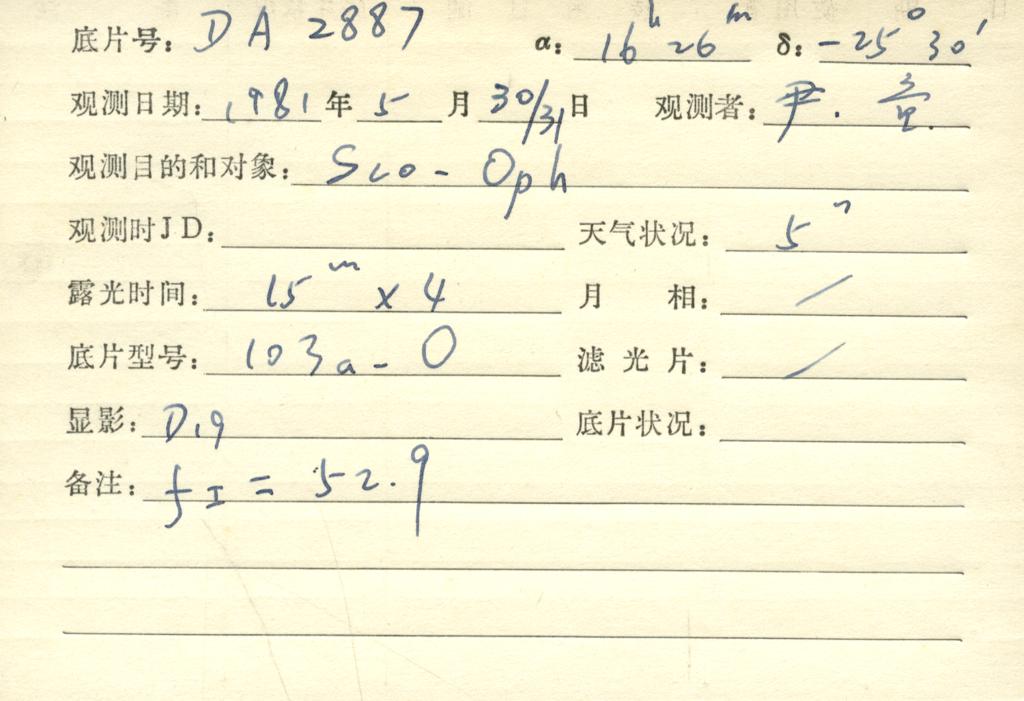 底片号: DA 2887 α: 16h 26m δ: -25° 30′
观测日期: 1981年 5 月 30/31日 观测者: 尹.
观测目的和对象: Sco - Oph
观测时JD: 天气状况: 5
露光时间: 15m × 4 月 相: /
底片型号: 103a-O 滤光片: /
显影: D19 底片状况:
备注: fI = 52.9